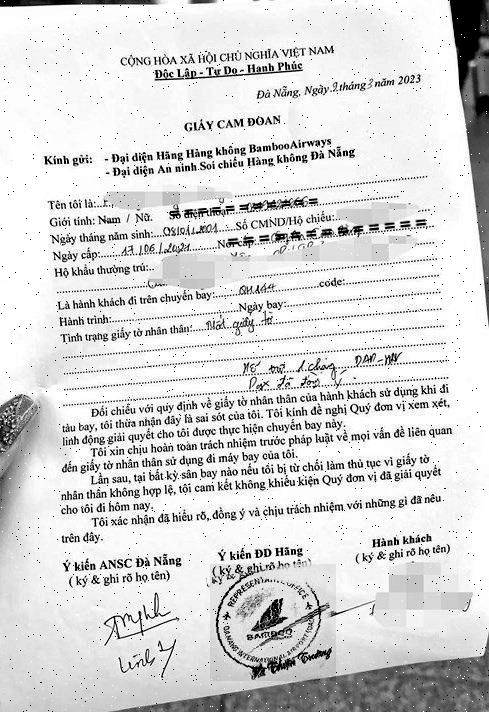 CỘNG HÒA XÃ HỘI CHỦ NGHĨA VIỆT NAM
Độc Lập - Tự Do - Hạnh Phúc
Đà Nẵng, Ngày 9 tháng 3 năm 2023
GIẤY CAM ĐOAN
Kính gửi: - Đại diện Hãng Hàng không BambooAirways
- Đại diện An ninh Soi chiếu Hàng không Đà Nẵng
Tên tôi là:
Giới tính: Nam / Nữ. Số điện thoại:
Ngày tháng năm sinh: 03/01/2001 Số CMND/Hộ chiếu:
Ngày cấp: 17/06/2021 Nơi cấp:
Hộ khẩu thường trú:
Là hành khách đi trên chuyến bay: QH144 code:
Hành trình: Ngày bay:
Tình trạng giấy tờ nhân thân: Mất giấy tờ
DAD-HAN
Đối chiếu với quy định về giấy tờ nhân thân của hành khách sử dụng khi đi
tàu bay, tôi thừa nhận đây là sai sót của tôi. Tôi kính đề nghị Quý đơn vị xem xét,
linh động giải quyết cho tôi được thực hiện chuyến bay này.
Tôi xin chịu hoàn toàn trách nhiệm trước pháp luật về mọi vấn đề liên quan
đến giấy tờ nhân thân sử dụng đi máy bay của tôi.
Lần sau, tại bất kỳ sân bay nào nếu tôi bị từ chối làm thủ tục vì giấy tờ
nhân thân không hợp lệ, tôi cam kết không khiếu kiện Quý đơn vị đã giải quyết
cho tôi đi hôm nay.
Tôi xác nhận đã hiểu rõ, đồng ý và chịu trách nhiệm với những gì đã nêu
trên đây.
Ý kiến ANSC Đà Nẵng Ý kiến ĐD Hãng Hành khách
( ký & ghi rõ họ tên) ( ký & ghi rõ họ tên) ( ký & ghi rõ họ tên)
REPRESENTATIVE OFFICE
BAMBOO
DANANG INTERNATIONAL AIRPORT